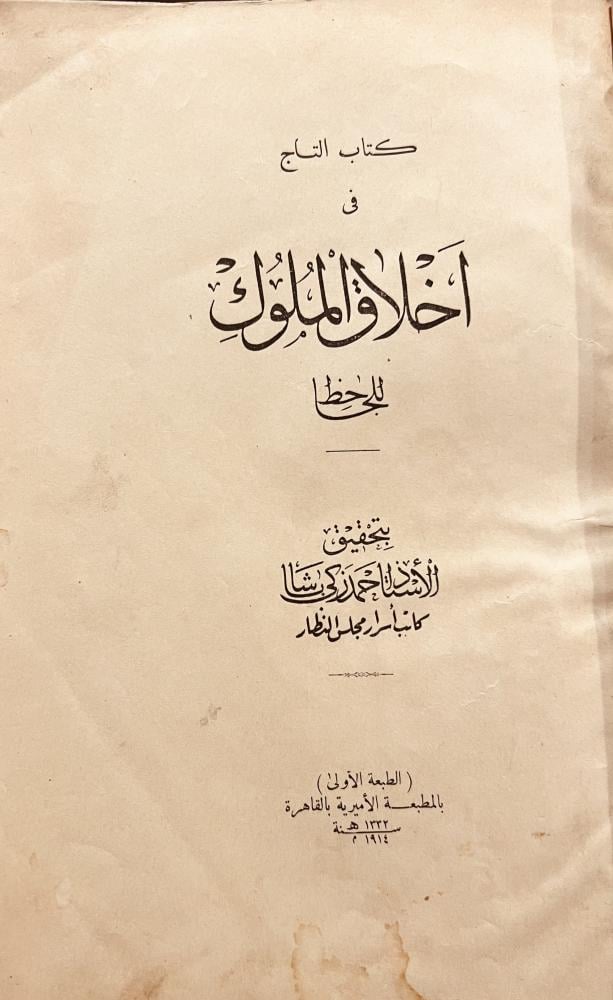 كتاب التاج
فى
أَخْلَاق الْمُلُوْكِ
للجاحِظ
بِتَحْقِيْق
الأستاذ احمد زكى باشا
كاتب أسرار مجلس النظار
( الطبعة الأولىٰ )
بالمطبعة الأميرية بالقاهرة
سنة ١٣٣٢ هـ
١٩١٤ م